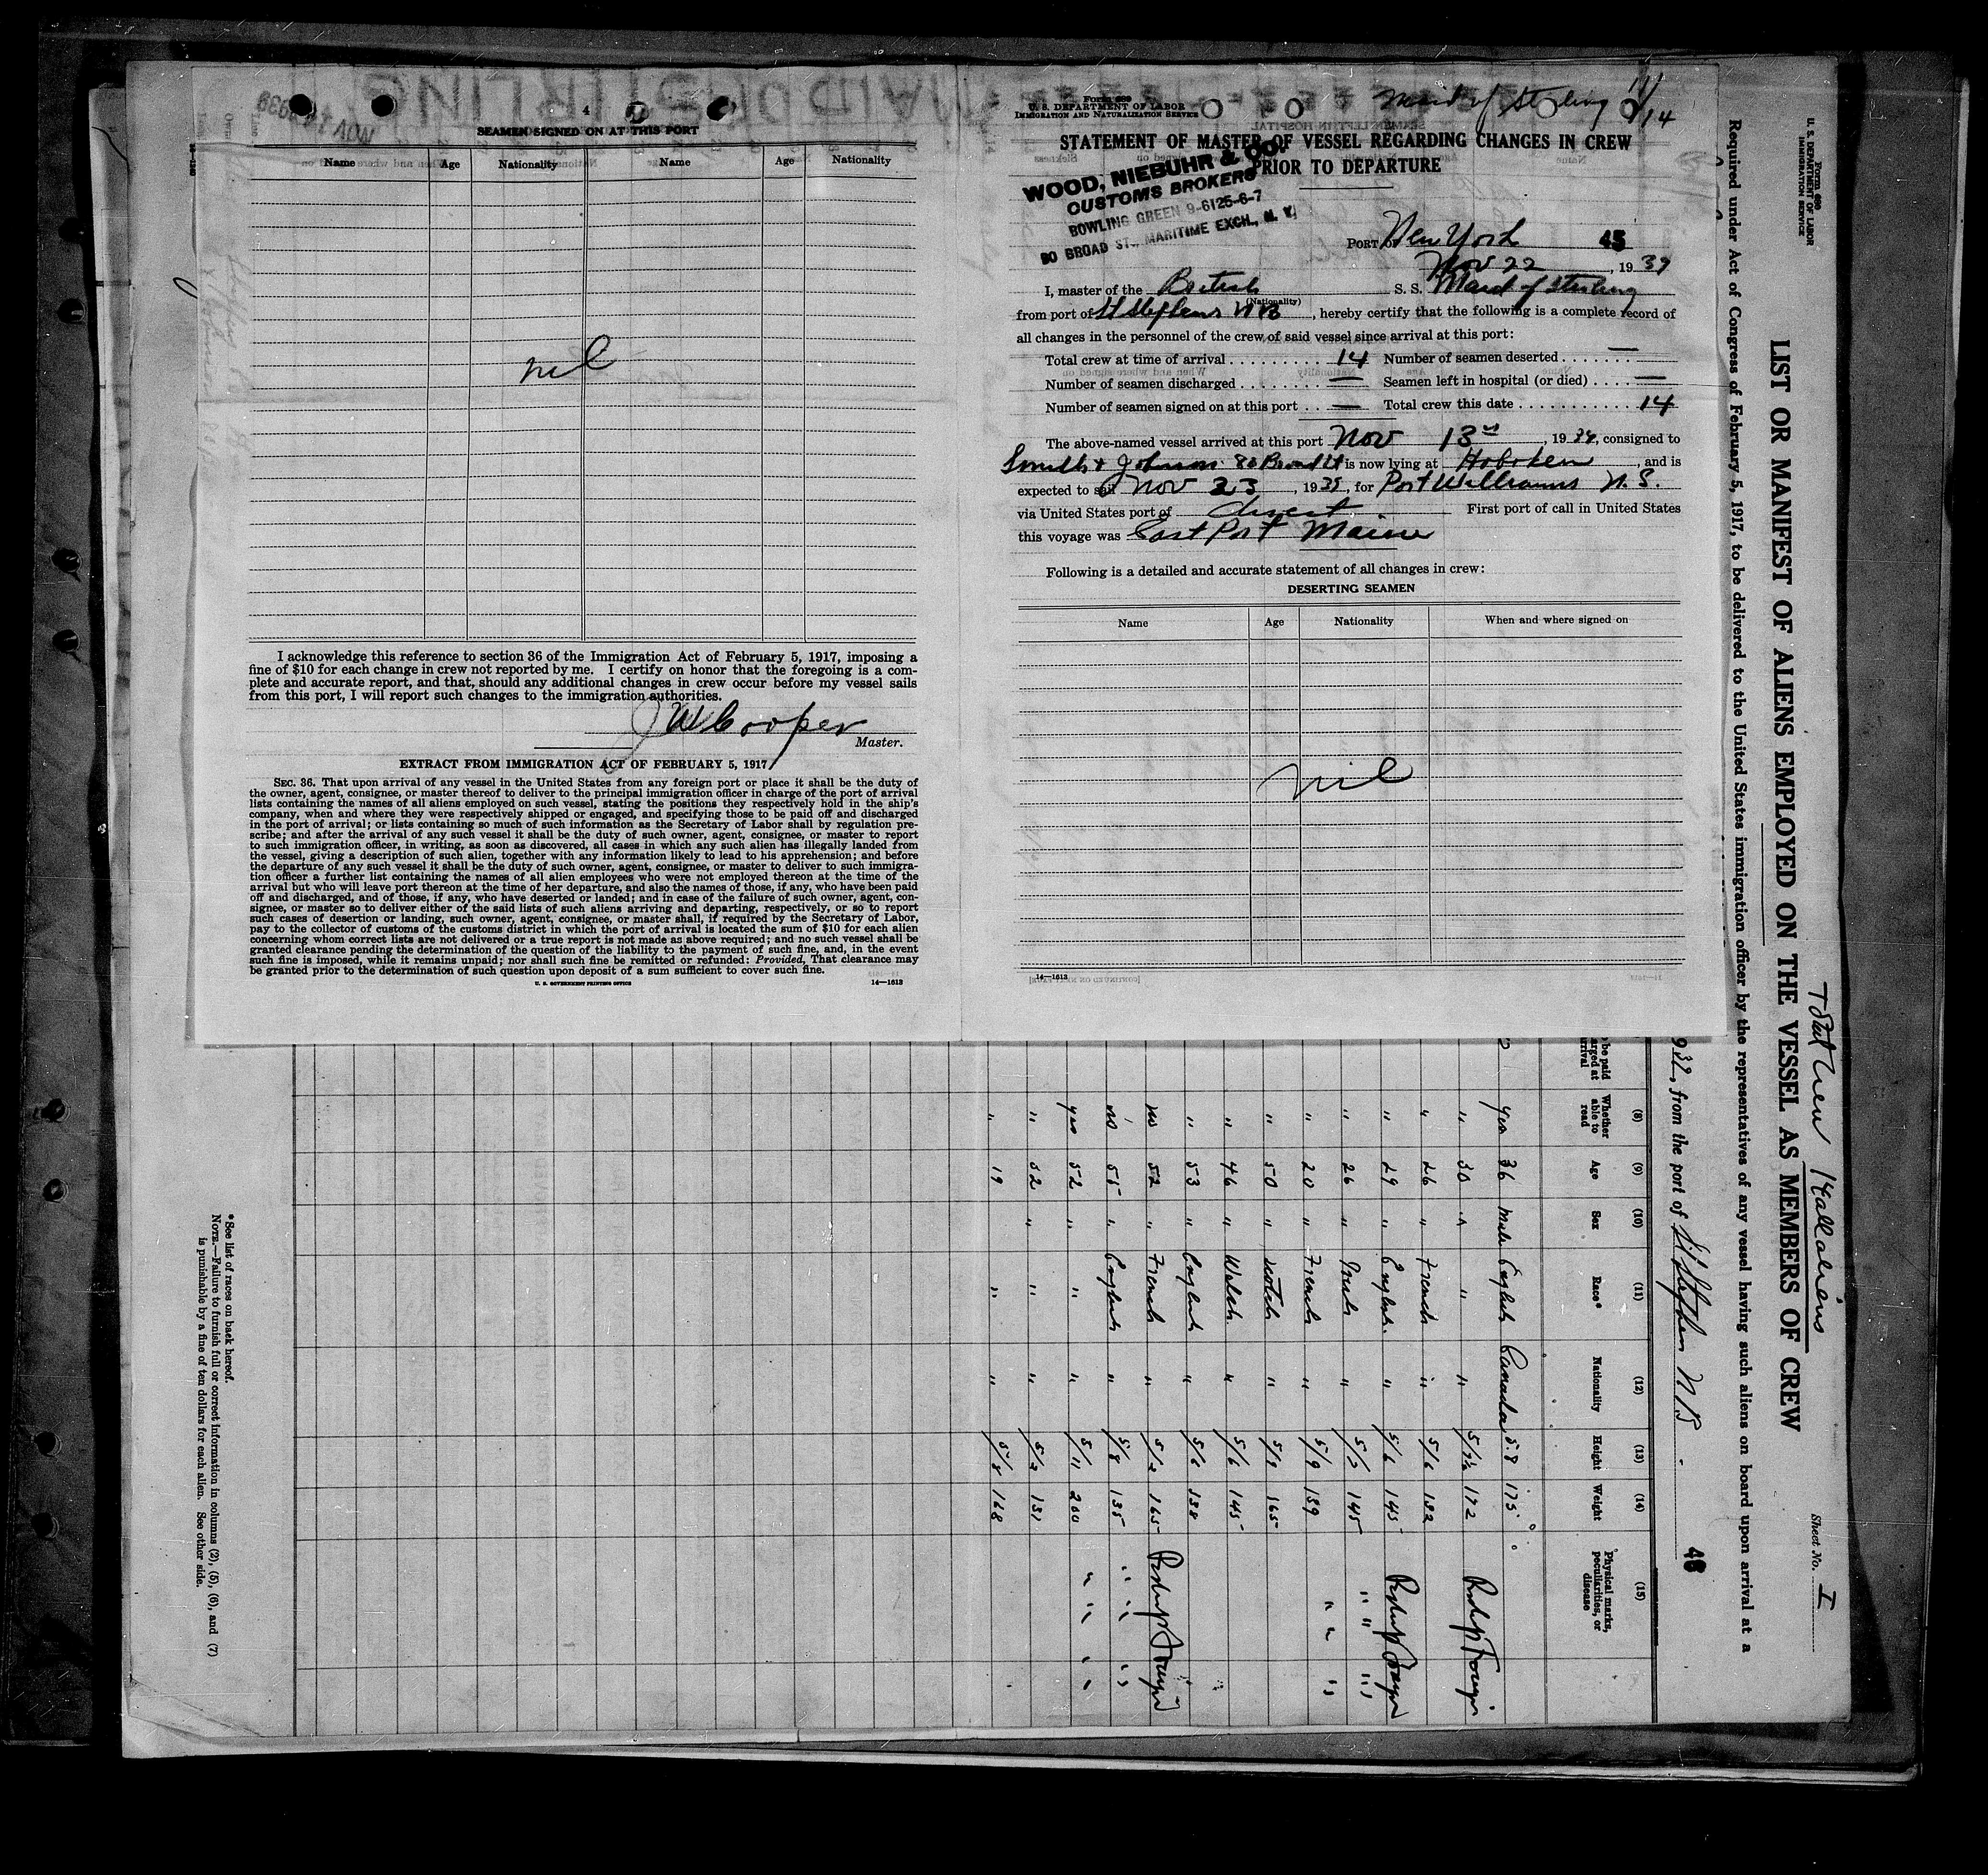 4
SEAMEN SIGNED ON AT THIS PORT
Name Age Nationality Name Age Nationality
nil
I acknowledge this reference to section 36 of the Immigration Act of February 5, 1917, imposing a
fine of $10 for each change in crew not reported by me. I certify on honor that the foregoing is a com-
plete and accurate report, and that, should any additional changes in crew occur before my vessel sails
from this port, I will report such changes to the immigration authorities.
J W Cooper
Master.
EXTRACT FROM IMMIGRATION ACT OF FEBRUARY 5, 1917
SEC. 36. That upon arrival of any vessel in the United States from any foreign port or place it shall be the duty of
the owner, agent, consignee, or master thereof to deliver to the principal immigration officer in charge of the port of arrival
lists containing the names of all aliens employed on such vessel, stating the positions they respectively hold in the ship's
company, when and where they were respectively shipped or engaged, and specifying those to be paid off and discharged
in the port of arrival; or lists containing so much of such information as the Secretary of Labor shall by regulation pre-
scribe; and after the arrival of any such vessel it shall be the duty of such owner, agent, consignee, or master to report
to such immigration officer, in writing, as soon as discovered, all cases in which any such alien has illegally landed from
the vessel, giving a description of such alien, together with any information likely to lead to his apprehension; and before
the departure of any such vessel it shall be the duty of such owner, agent, consignee, or master to deliver to such immigra-
tion officer a further list containing the names of all alien employees who were not employed thereon at the time of the
arrival but who will leave port thereon at the time of her departure, and also the names of those, if any, who have been paid
off and discharged, and of those, if any, who have deserted or landed; and in case of the failure of such owner, agent, con-
signee, or master so to deliver either of the said lists of such aliens arriving and departing, respectively, or so to report
such cases of desertion or landing, such owner, agent, consignee, or master shall, if required by the Secretary of Labor,
pay to the collector of customs of the customs district in which the port of arrival is located the sum of $10 for each alien
concerning whom correct lists are not delivered or a true report is not made as above required; and no such vessel shall be
granted clearance pending the determination of the question of the liability to the payment of such fine, and, in the event
such fine is imposed, while it remains unpaid; nor shall such fine be remitted or refunded: Provided, That clearance may
be granted prior to the determination of such question upon deposit of a sum sufficient to cover such fine.
U. S. GOVERNMENT PRINTING OFFICE 14—1613
Form 689
U. S. DEPARTMENT OF LABOR
IMMIGRATION AND NATURALIZATION SERVICE
Maid of Sterling 11/14
STATEMENT OF MASTER OF VESSEL REGARDING CHANGES IN CREW
PRIOR TO DEPARTURE
WOOD, NIEBUHR & CO.
CUSTOMS BROKERS
BOWLING GREEN 9-6125-6-7
80 BROAD ST., MARITIME EXCH., N. Y.
PORT OF New York 45
Nov 22, 1939
I, master of the British S. S. Maid of Sterling
(Nationality)
from port of St Stephens NB, hereby certify that the following is a complete record of
all changes in the personnel of the crew of said vessel since arrival at this port:
Total crew at time of arrival 14 Number of seamen deserted —
Number of seamen discharged — Seamen left in hospital (or died) —
Number of seamen signed on at this port — Total crew this date 14
The above-named vessel arrived at this port Nov 13, 1939, consigned to
Smith & Johnson 80 Broad St is now lying at Hoboken, and is
expected to sail Nov 23, 1939, for Port Williams N.S.
via United States port of direct First port of call in United States
this voyage was East Port Maine
Following is a detailed and accurate statement of all changes in crew:
DESERTING SEAMEN
Name Age Nationality When and where signed on
nil
14—1613
Form 689
U. S. DEPARTMENT OF LABOR
IMMIGRATION SERVICE
Total crew 14 all aliens
Sheet No. I
LIST OR MANIFEST OF ALIENS EMPLOYED ON THE VESSEL AS MEMBERS OF CREW
Required under Act of Congress of February 5, 1917, to be delivered to the United States immigration officer by the representatives of any vessel having such aliens on board upon arrival at a
from the port of St Stephen NB 45
(8) (9) (10) (11) (12) (13) (14) (15)
Whether able to read Age Sex Race* Nationality Height Weight Physical marks, peculiarities, or disease
yes 36 Male English Canada 5.8 175
" 30 " " " 5/9½ 172
" 26 " French " 5/6 132
" 29 " English " 5/6 145
" 26 " Irish " 5/7 145
" 20 " French " 5/9 139
" 50 " Scotch " 5/9 165
" 46 " Welsh " 5/6 145
" 53 " English " 5/6 138
yes 52 " French " 5/2 165
no 55 " English " 5/8 135
yes 52 " " " 5/11 200
" 32 " " " 5/2 131
" 19 " " 5/8 168
* See list of races on back hereof.
NOTE.—Failure to furnish full or correct information in columns (2), (5), (6), and (7)
is punishable by a fine of ten dollars for each alien. See other side.